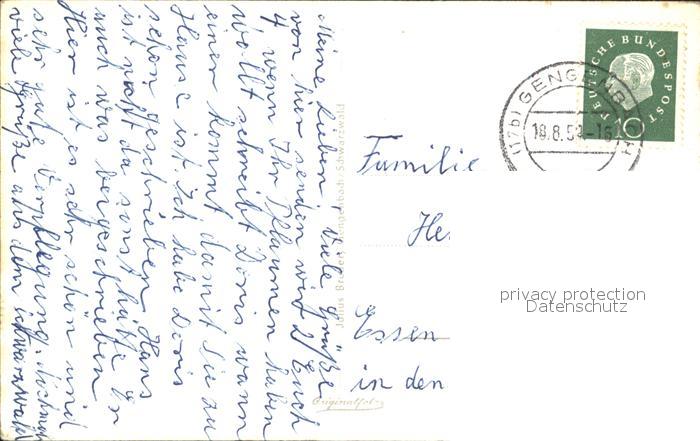 Meine Lieben! Viele Grüße
von hier senden wir 2 Euch
4 wenn Ihr Pflaumen haben
wollt schreibt Doris wann
einer kommt damit sie zu
Hause ist. Ich habe Doris
schon geschrieben Hans
ist nicht da sonst hätte Er
auch was bergeschrieben
Hier ist es sehr schön und
sehr gute Verpflegung. Nochmal
viele Grüße aus dem Schwarzwald
Gengenbach/Schwarzwald
Originalfoto
Familie
He
Essen
in den
DEUTSCHE BUNDESPOST
10
(17b) GENGENBACH
18.8.59-16
privacy protection
Datenschutz